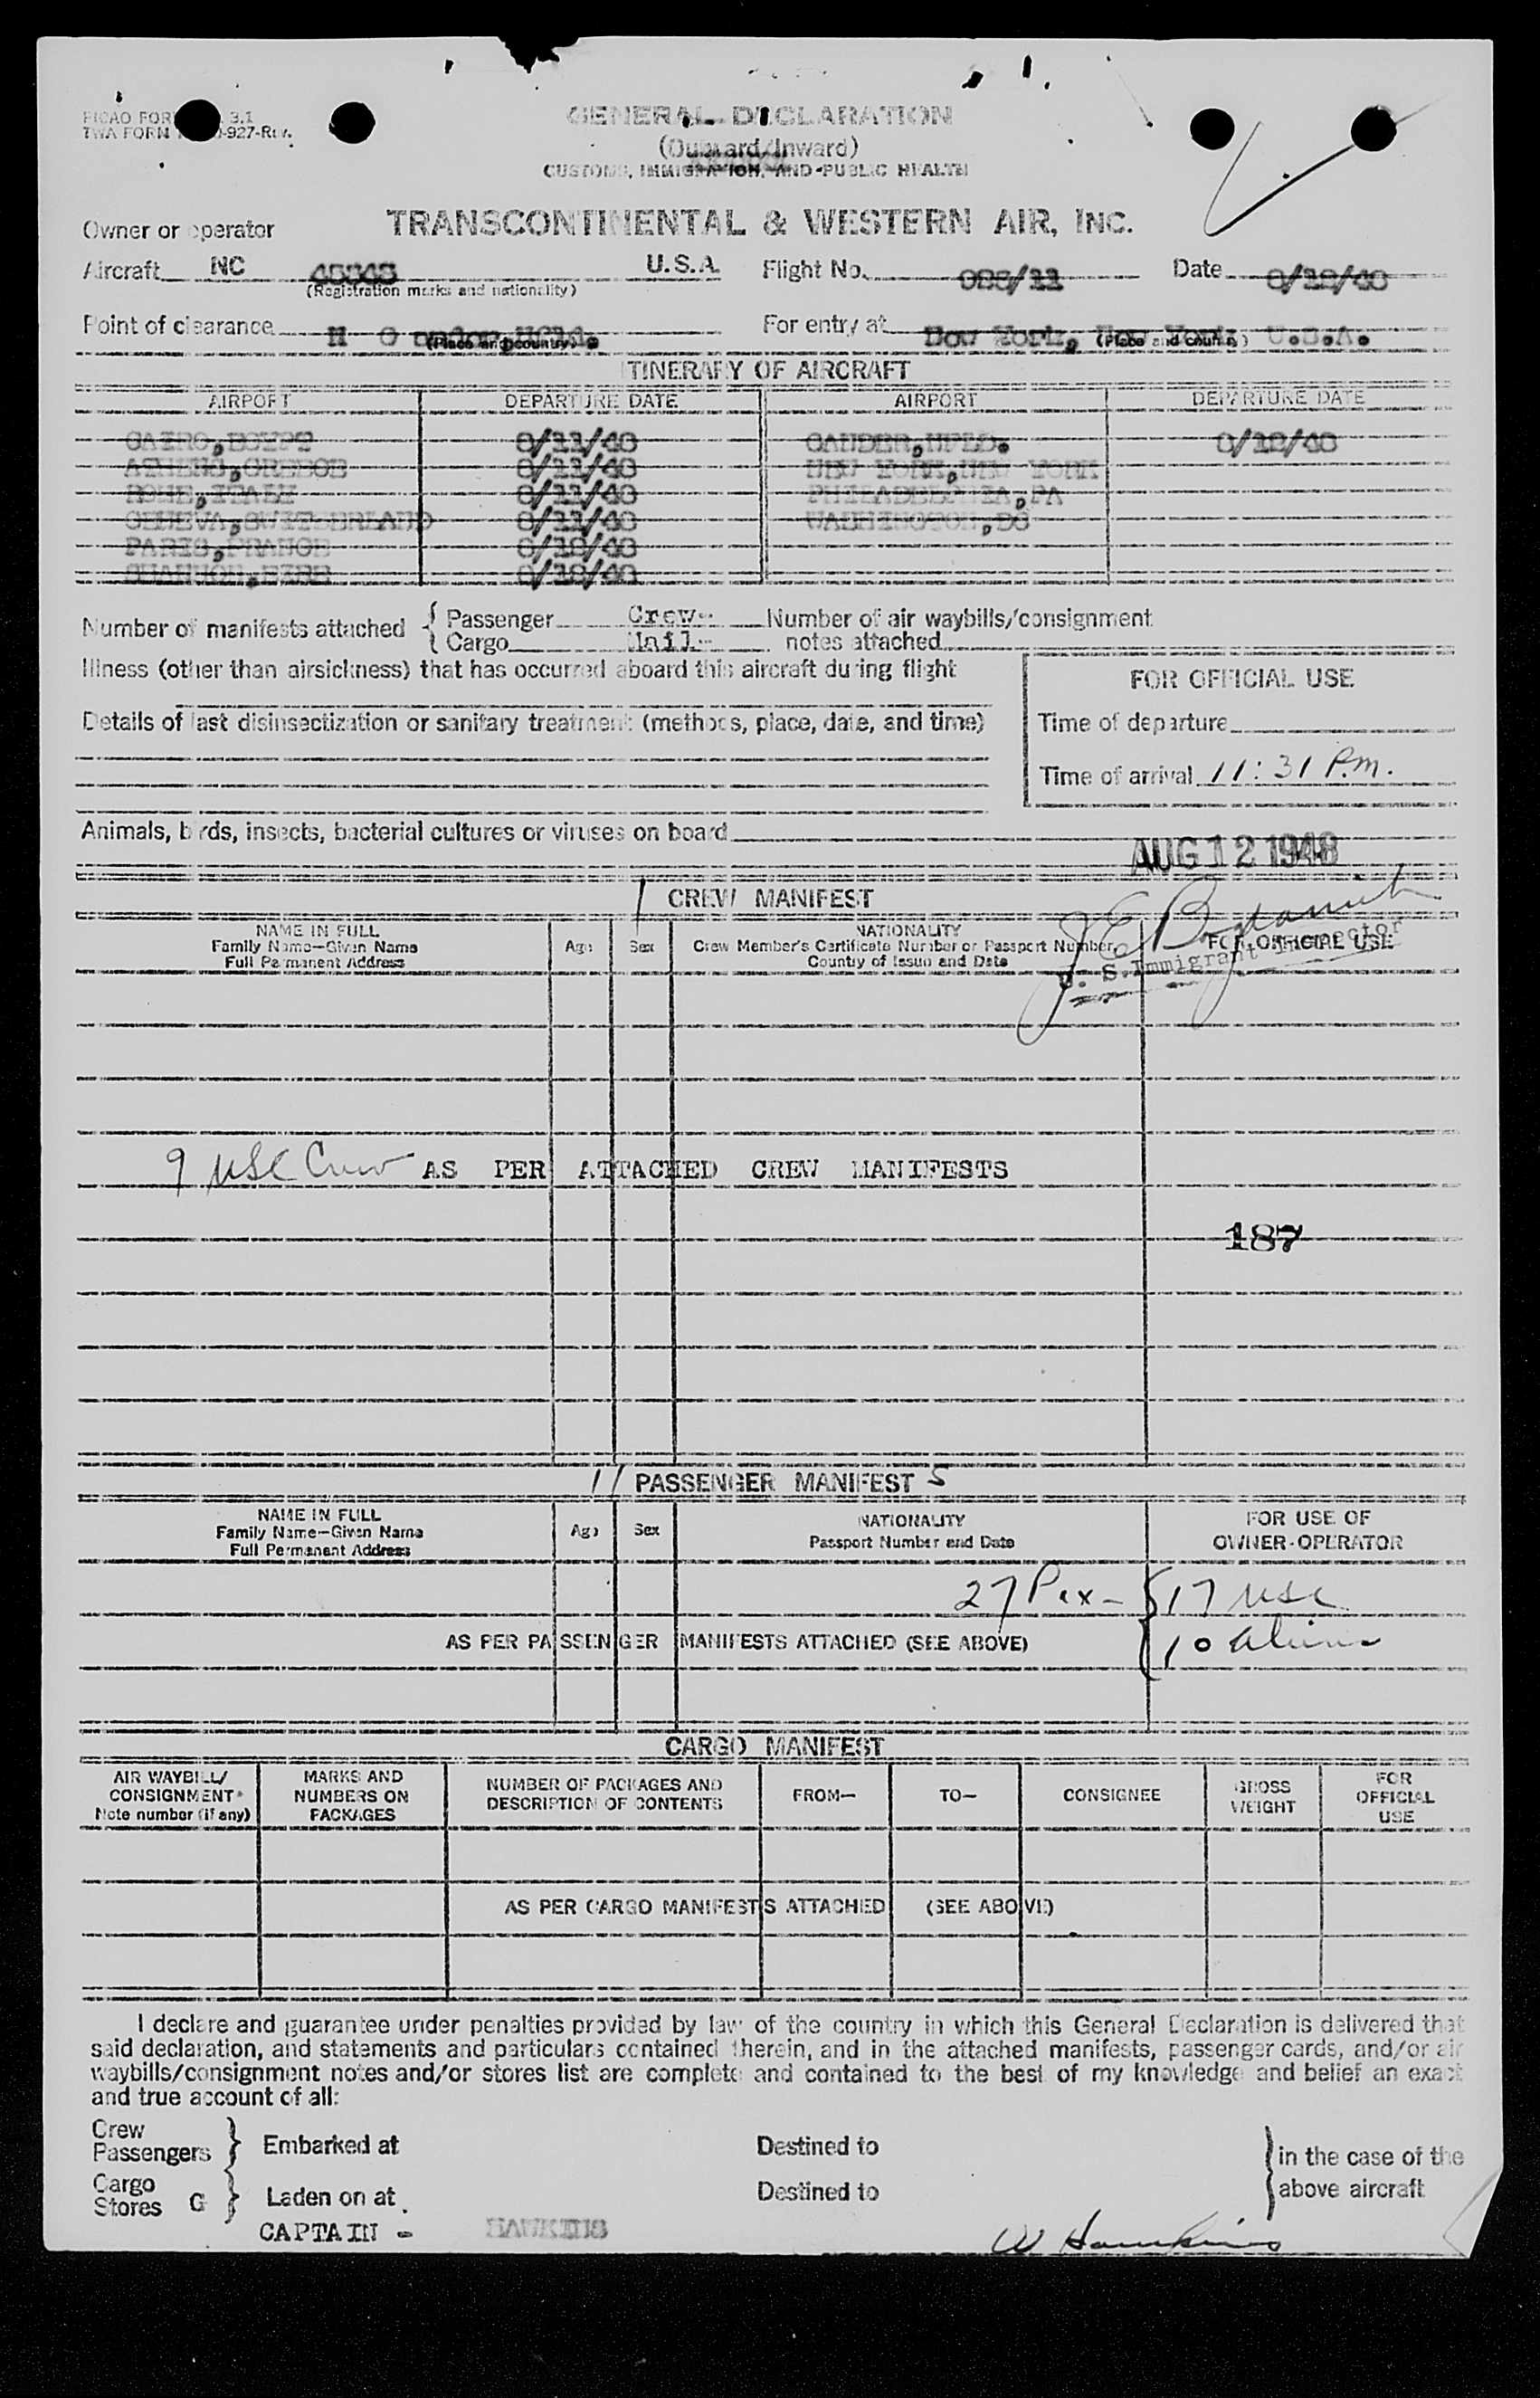 GENERAL DECLARATION
(Outward/Inward)
CUSTOMS, IMMIGRATION, AND PUBLIC HEALTH
TWA FORM -927-Rev.
Owner or operator TRANSCONTINENTAL & WESTERN AIR, INC.
Aircraft NC U.S.A. Flight No. Date 8/12/48
(Registration marks and nationality)
Point of clearance For entry at New York, New York U.S.A.
(Place and country) (Place and country)
ITINERARY OF AIRCRAFT
AIRPORT DEPARTURE DATE AIRPORT DEPARTURE DATE
CAIRO,EGYPT 8/11/48 GANDER,NFLD. 8/12/48
ATHENS,GREECE 8/11/48 NEW YORK,NEW YORK
ROME,ITALY 8/11/48 PHILADELPHIA,PA
GENEVA,SWITZERLAND 8/11/48 WASHINGTON,DC
PARIS,FRANCE 8/12/48
SHANNON,EIRE 8/12/48
Number of manifests attached { Passenger Crew- Number of air waybills/consignment
{ Cargo Mail- notes attached
Illness (other than airsickness) that has occurred aboard this aircraft during flight
FOR OFFICIAL USE
Details of last disinsectization or sanitary treatment (methods, place, date, and time)
Time of departure
Time of arrival 11:31 P.m.
Animals, birds, insects, bacterial cultures or viruses on board
AUG 12 1948
CREW MANIFEST
NAME IN FULL
Family Name—Given Name
Full Permanent Address
Age Sex
NATIONALITY
Crew Member's Certificate Number or Passport Number
Country of Issue and Date
FOR OFFICIAL USE
U. S. Immigrant Inspector
9 USC Crew AS PER ATTACHED CREW MANIFESTS
187
11 PASSENGER MANIFEST 5
NAME IN FULL
Family Name—Given Name
Full Permanent Address
Age Sex
NATIONALITY
Passport Number and Date
FOR USE OF
OWNER-OPERATOR
27 Pax - { 17 USC
AS PER PASSENGER MANIFESTS ATTACHED (SEE ABOVE) { 10 aliens
CARGO MANIFEST
AIR WAYBILL/
CONSIGNMENT
Note number (if any)
MARKS AND
NUMBERS ON
PACKAGES
NUMBER OF PACKAGES AND
DESCRIPTION OF CONTENTS
FROM—
TO—
CONSIGNEE
GROSS
WEIGHT
FOR
OFFICIAL
USE
AS PER CARGO MANIFESTS ATTACHED (SEE ABOVE)
I declare and guarantee under penalties provided by law of the country in which this General Declaration is delivered that
said declaration, and statements and particulars contained therein, and in the attached manifests, passenger cards, and/or air
waybills/consignment notes and/or stores list are complete and contained to the best of my knowledge and belief an exact
and true account of all:
Crew
Passengers } Embarked at Destined to } in the case of the
Cargo
Stores G } Laden on at Destined to } above aircraft
CAPTAIN - HAWKINS W Hawkins